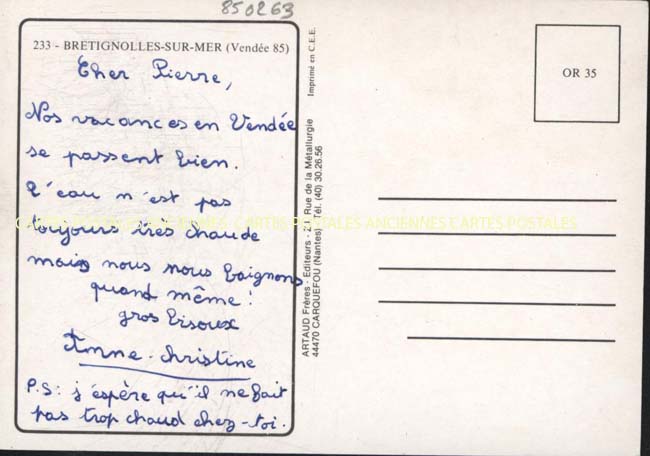 850263
233 - BRETIGNOLLES-SUR-MER (Vendée 85)
Cher Pierre,
Nos vacances en Vendée
se passent bien.
L'eau n'est pas
toujours très chaude
mais nous nous baignons
quand même !
gros bisoux
Anne-Christine
P.S: j'espère qu'il ne fait
pas trop chaud chez-toi.
Imprimé en C.E.E.
ARTAUD Frères - Editeurs - 21, Rue de la Métallurgie
44470 CARQUEFOU (Nantes) - Tél. (40) 30.26.56
OR 35
CARTES POSTALES ANCIENNES CARTES POSTALES ANCIENNES CARTES POSTALES